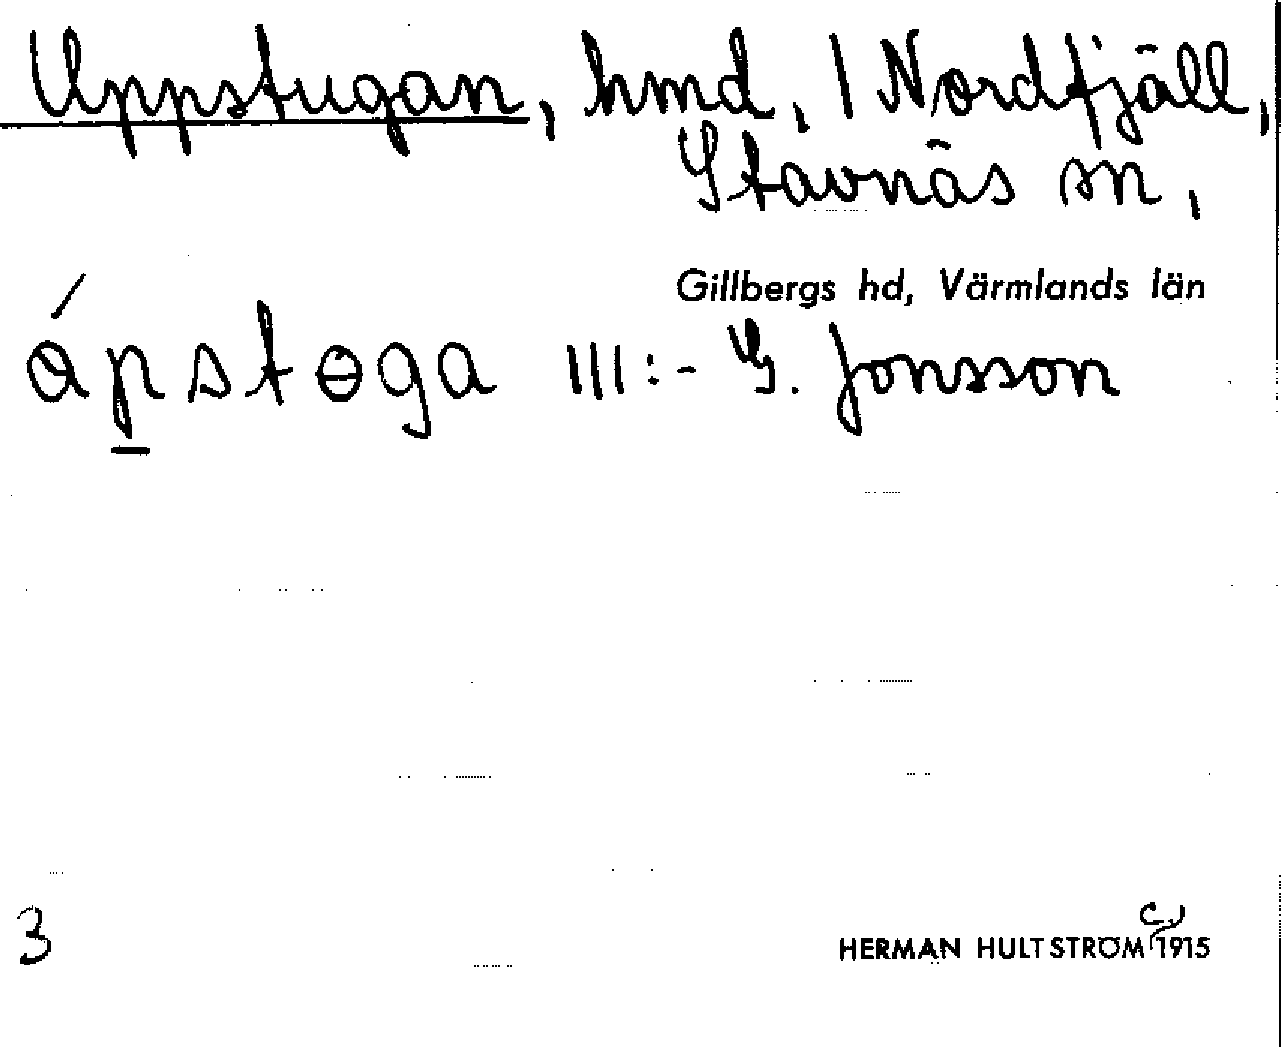 Uppstugan, hmd, i Nordfjäll,
Stavnäs sn,
Gillbergs hd, Värmlands län
ápstɵga III:- G. Jonsson
3
c.
HERMAN HULTSTRÖM 1915